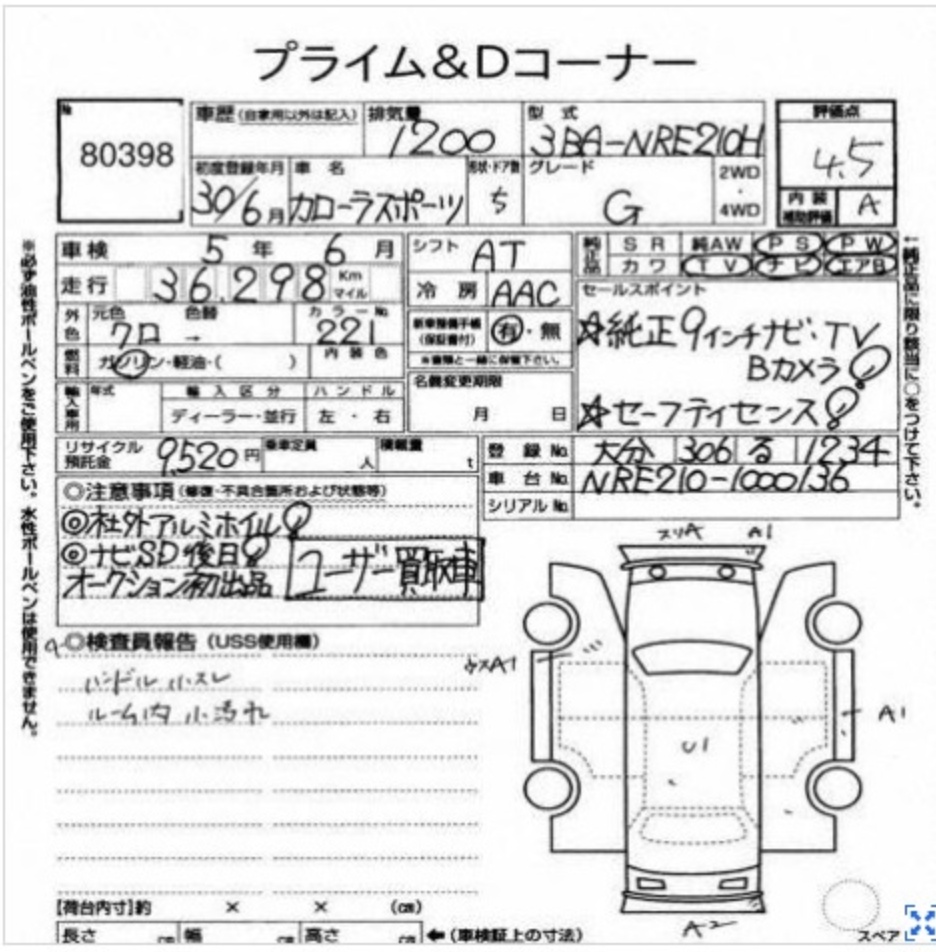 プライム&Dコーナー
№ 80398
車歴(自家用以外は記入)
排気量 1200
型式 3BA-NRE210H
評価点 4.5
初度登録年月 30/6月
車名 カローラスポーツ
形状・ドア数 5
グレード G
2WD・4WD
内装補助評価 A
車検 5年 6月
シフト AT
純正品 SR 純AW PS PW
カワ TV ナビ エアB
走行 36,298 Km マイル
冷房 AAC
セールスポイント
外色 元色 クロ → 色替 カラーNo. 221
新車整備手帳(保証書付) 有・無
※書類と一緒に保管下さい。
☆純正9インチナビ・TV
Bカメラ!
☆セーフティセンス!
燃料 ガソリン・軽油・( ) 内装色
名義変更期限 月 日
輸入車用 年式 輸入区分 ハンドル
ディーラー・並行 左・右
リサイクル預託金 9,520円
乗車定員 人
積載量 t
登録No. 大分 306 る 1234
車台No. NRE210-1000136
シリアルNo.
◎注意事項(修復・不具合箇所および状態等)
◎社外アルミホイル!
◎ナビSD後日!
オークション初出品
ユーザー買取車
◎検査員報告(USS使用欄)
ハンドル小スレ
ルーム内 小汚れ
スリA A1
ウスA1
A1
U1
A2
スペア
【荷台内寸】約 × × (cm)
長さ cm 幅 cm 高さ cm ←(車検証上の寸法)
※必ず油性ボールペンをご使用下さい。水性ボールペンは使用できません。
←純正品に限り該当に○をつけて下さい。